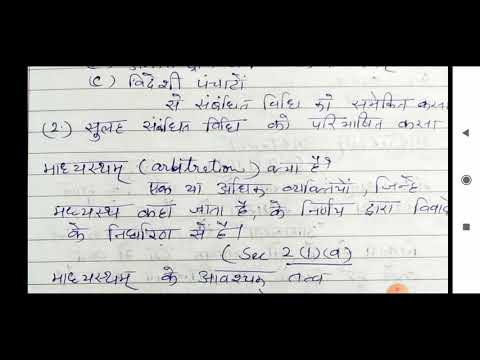 (C) विदेशी पंचाटों
से संबंधित विधि को समेकित करना
(2) सुलह संबंधित विधि को परिभाषित करना
माध्यस्थम् (arbitretion) क्या है?
एक या अधिक व्यक्तियों, जिन्हें
मध्यस्थ कहा जाता है, के निर्णय द्वारा विवाद
के निर्धारण से है।
(Sec 2 (1)(a)
माध्यस्थम् के आवश्यक तत्व